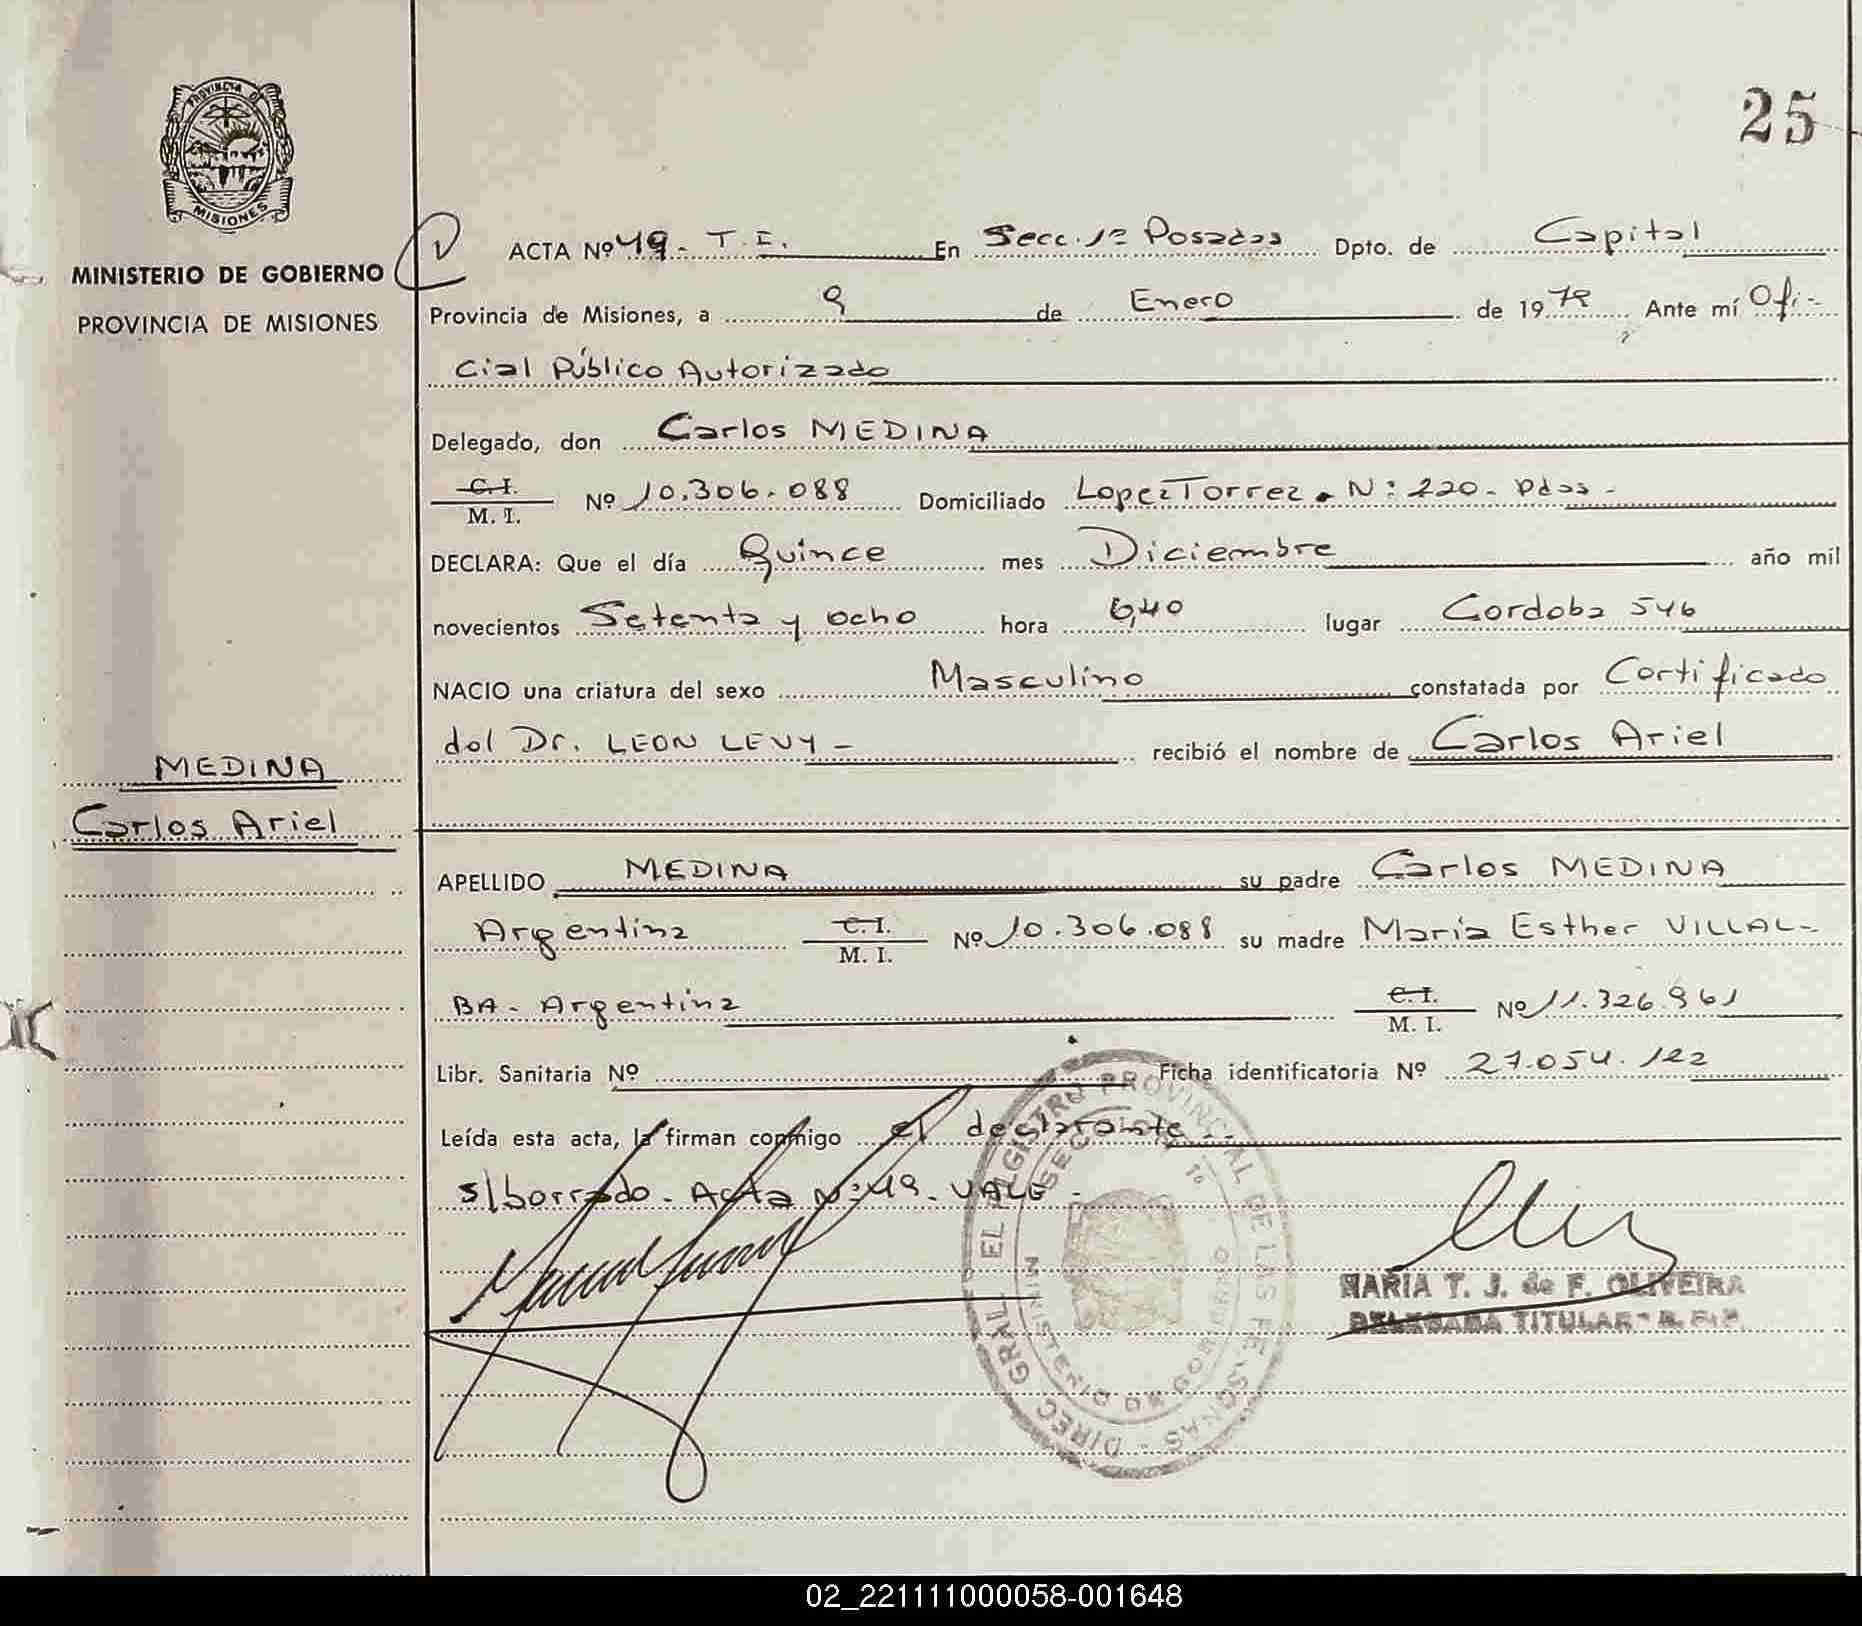 25
PROVINCIA DE
MISIONES
MINISTERIO DE GOBIERNO
PROVINCIA DE MISIONES
ACTA Nº 49 - T. I. En Secc. 1ª Posadas Dpto. de Capital
Provincia de Misiones, a 9 de Enero de 19 79 Ante mí Ofi-
cial Público Autorizado
Delegado, don Carlos MEDINA
C. I.
M. I. Nº 10.306.088 Domiciliado Lopez Torrez N: 220 - Pdas -
DECLARA: Que el día Quince mes Diciembre año mil
novecientos Setenta y ocho hora 6,40 lugar Cordoba 546
NACIO una criatura del sexo Masculino constatada por Certificado
del Dr. LEON LEVY - recibió el nombre de Carlos Ariel
MEDINA
Carlos Ariel
APELLIDO MEDINA su padre Carlos MEDINA
Argentina C. I. M. I. Nº 10.306.088 su madre María Esther VILLAL-
BA - Argentina C. I. M. I. Nº 11.326.961
Libr. Sanitaria Nº Ficha identificatoria Nº 27.054.122
Leída esta acta, la firman conmigo el declarante
s/borrado - Acta Nº: 49 - VALE -
DIREC GRAL. EL REGISTRO PROVINCIAL DE LAS PERSONAS -
MINISTERIO DE GOBIERNO SECC. 1ª
MARIA T. J. de F. OLIVEIRA
DELEGADA TITULAR - R. P. P.
02_221111000058-001648